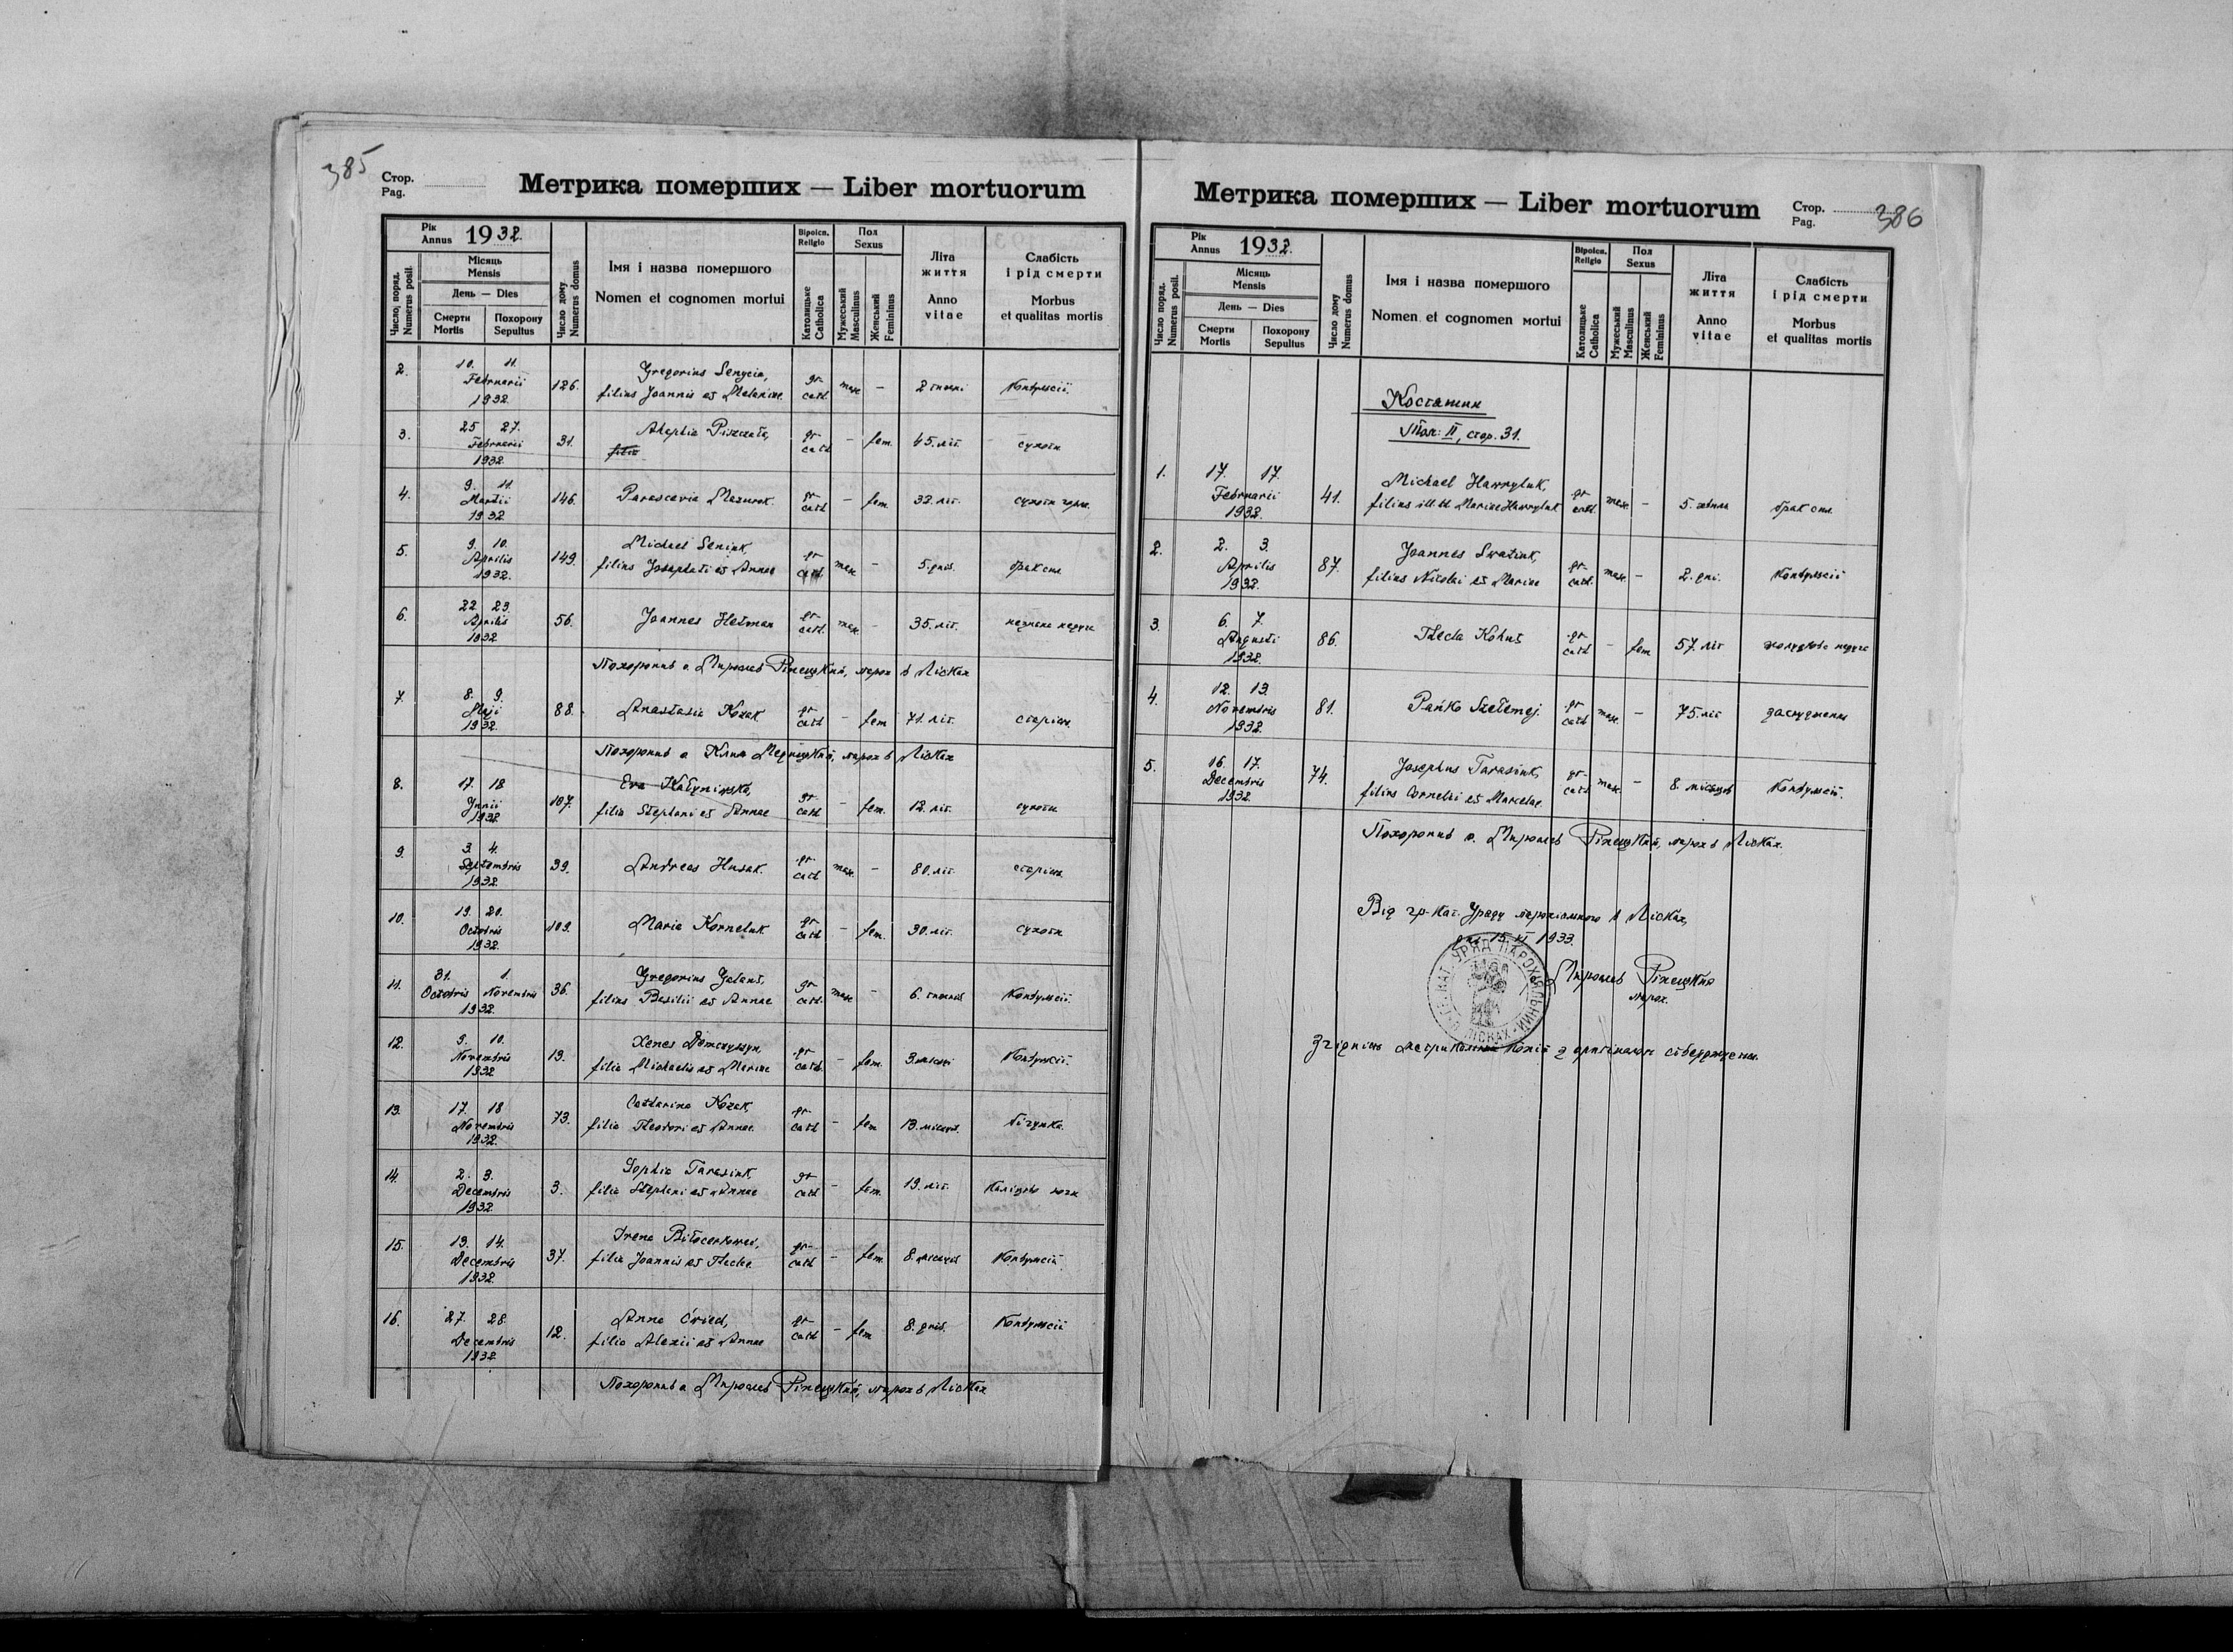 385
Стор.
Pag.
Метрика померших — Liber mortuorum
Рік
Annus 1932.
Число поряд.
Numerus posit.
Місяць
Mensis
День — Dies
Смерти
Mortis
Похорону
Sepultus
Число дому
Numerus domus
Імя і назва помершого
Nomen et cognomen mortui
Віроісп.
Religio
Католицьке
Catholica
Пол
Sexus
Мужеський
Masculinus
Женський
Femininus
Літа
життя
Anno
vitae
Слабість
і рід смерти
Morbus
et qualitas mortis
2. 10. 11. Februarii 1932 126. Gregorius Senycia,
filius Joannis et Melaniae gr. cath. masc. – 2 Конвульсії.
3. 25 27. Februarii 1932. 31. gr. cath. – fem. 45. літ. сухоти
filia
4. 9. 11. Martii 1932 146. Parascevia Mazurok. gr. cath. – fem. 32. літ. сухоти
5. 9. 10. Aprilis 1932. 149. Michael Seniuk,
filius Josaphati et Annae gr. cath. masc. – 5. днів. брак сил
6. 22 23. Aprilis 1932 56. Joannes Hetman gr. cath. masc. – 35. літ. незнана недуга
Похоронив о. Мирослав Ріпецкий, парох в Лісках
7. 8. 9. Maji 1932. 88. Anastasia Kozak gr. cath. – fem 71. літ. старість
Похоронив о. Клим парох в Лісках
8. 17. 18 Junii 1932. 107. Eva
filia Stephani et Annae gr. cath. – fem. 12. літ. сухоти
9. 3. 4. Septembris 1932 39. Andreas Husak. gr. cath. masc. – 80. літ. старість
10. 19. 20. Octobris 1932. 109. Maria Korneluk gr. cath. – fem. 30. літ. сухоти
11. 31. Octobris 1. Novembris 1932. 36. Gregorius
filius Basilii et Annae gr. cath. masc – 6. Конвульсії.
12. 9. 10. Novembris 1932 19. Xenes
filia Michaelis et Mariae gr. cath. – fem. 3. місяці Конвульсії.
13. 17. 18 Novembris 1932. 73. Catharina Kozak,
filia Theodori et Annae. gr. cath. – fem 13. місяців. бігунка.
14. 2. 3. Decembris 1932. 3. Sophia Tarasiuk,
filia Stephani et Annae gr. cath. – fem. 19. літ.
15. 13. 14. Decembris 1932. 37. Irena
filia Joannis et Theclae. gr. cath. – fem. 8. місяців Конвульсії.
16. 27. 28. Decembris 1932 12. Anna
filia Alexii et Annae gr. cath. – fem 8. днів. Конвульсії
Похоронив о. Мирослав Ріпецкий, парох в Лісках
Метрика померших — Liber mortuorum
Стор.
Pag.
386
Рік
Annus 1932.
Число поряд.
Numerus posit.
Місяць
Mensis
День — Dies
Смерти
Mortis
Похорону
Sepultus
Число дому
Numerus domus
Імя і назва помершого
Nomen et cognomen mortui
Віроісп.
Religio
Католицьке
Catholica
Пол
Sexus
Мужеський
Masculinus
Женський
Femininus
Літа
життя
Anno
vitae
Слабість
і рід смерти
Morbus
et qualitas mortis
Косташин
Том: II, стор. 31.
1. 17. 17. Februarii 1932. 41. Michael Hawryluk,
filius Mariae Hawryluk gr. cath. masc. – 5. брак сил.
2. 2. 3. Aprilis 1932. 87. Joannes
filius Nicolai et Mariae gr. cath. masc. – 2. дні. Конвульсії
3. 6. 7. Augusti 1932. 86. Thecla Kohut gr. cath – fem 57. літ недуга
4. 12. 13. Novembris 1932. 81. Pańko gr. cath. masc. – 75. літ
5. 16. 17. Decembris 1932. 74. Josephus Tarasiuk,
filius Cornelii et Marcelae. gr. cath. masc. – 8. місяців Конвульсії.
Похоронив о. Мирослав Ріпецкий, парох в Лісках.
Від гр-кат. Уряду парохіяльного в Лісках,
дня 15. VI 1933.
Мирослав Ріпецкий
парох.
Згідність метрикальної копії з оригіналом стверджено.